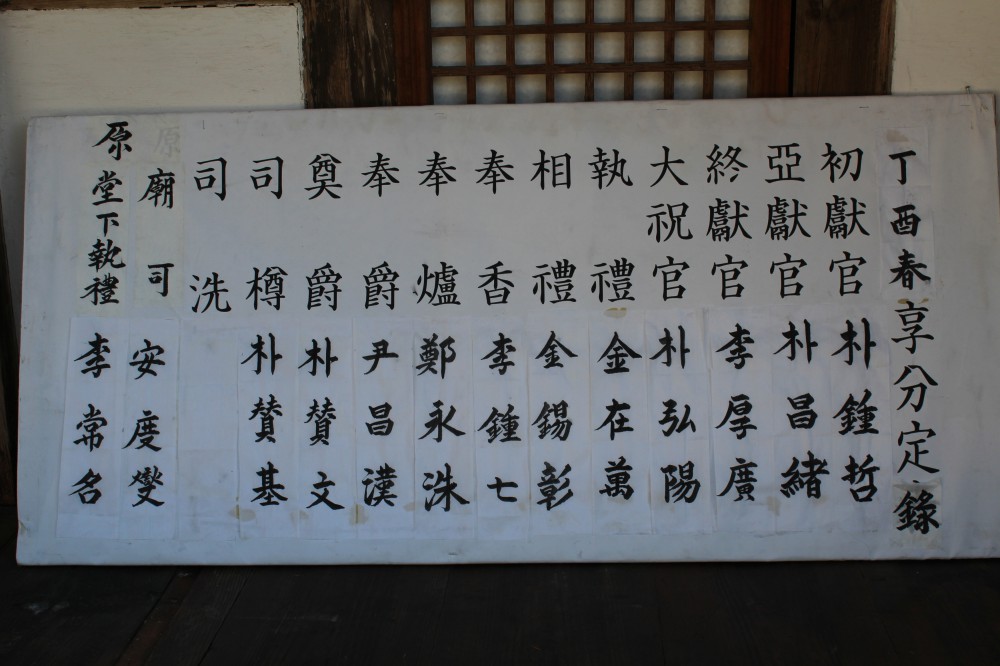 丁酉春享分定錄
初獻官 朴鍾哲
亞獻官 朴昌緒
終獻官 李厚廣
大祝官 朴弘陽
執禮 金在萬
相禮 金錫彰
奉香 李鍾七
奉爐 鄭永洙
奉爵 尹昌漢
奠爵 朴贊文
司樽 朴贊基
司洗
廟司 安度燮
原堂下執禮 李常名